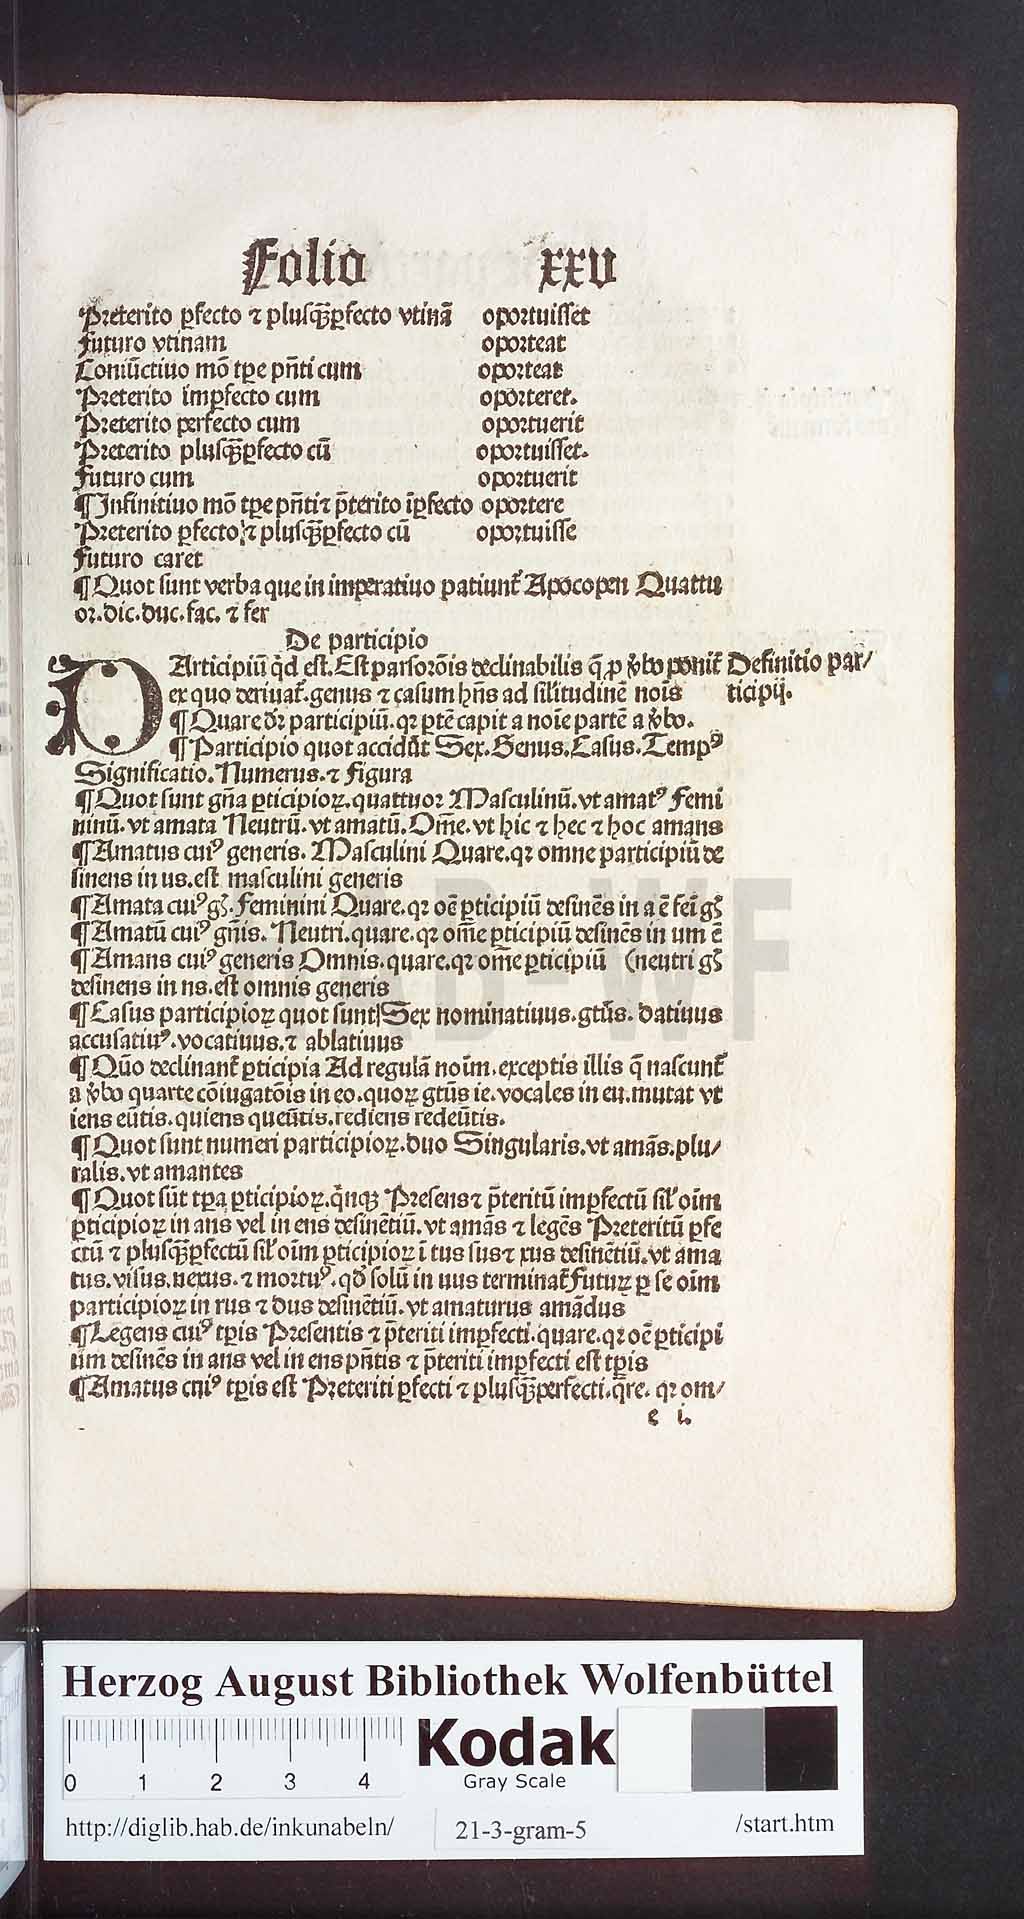 Folio xxv
Preterito ꝑfecto ⁊ plusq̃ꝑfecto vtinã oportuisset
Futuro vtinam oporteat
Coniũctiuo mõ tꝑe pñti cum oporteat
Preterito imꝑfecto cum oporteret.
Preterito perfecto cum oportuerit
Preterito plusq̃ꝑfecto cũ oportuisset.
Futuro cum oportuerit
¶ Infinitiuo mõ tꝑe pñti ⁊ p̃terito ĩꝑfecto oportere
Preterito ꝑfecto ⁊ plusq̃ꝑfecto cũ oportuisse
Futuro caret
¶ Quot sunt verba que in imperatiuo patiunt᷑ Apocopen Quattu
or. dic. duc. fac. ⁊ fer
De participio
PArticipiũ qͥd est. Est pars orõis declinabilis q̃ ꝓ v̾bo ponit᷑
Definitio par/
ticipij.
ex quo deriuat᷑. genus ⁊ casum hñs ad sil̃itudinẽ nois
¶ Quare dr̃ participiũ. qꝛ ptẽ capit a noĩe partẽ a v̾bo.
¶ Participio quot accidũt Sex. Genus. Casus. Tempꝰ
Significatio. Numerus. ⁊ figura
¶ Quot sunt gña ꝑticipioꝝ. quattuor Masculinũ. vt amatꝰ Femi
ninũ. vt amata Neutrũ. vt amatũ. Om̃e. vt hic ⁊ hec ⁊ hoc amans
¶ Amatus cuiꝰ generis. Masculini Quare. qꝛ omne participiũ de
sinens in us. est masculini generis
¶ Amata cuiꝰ gñs. Feminini Quare. qꝛ oẽ ꝑticipiũ desinẽs in a ẽ fei gñs
¶ Amatũ cuiꝰ gñis. Neutri. quare. qꝛ om̃e ꝑticipiũ desinẽs in um ẽ
¶ Amans cuiꝰ generis Omnis. quare. qꝛ om̃e ꝑticipiũ (neutri gñs
desinens in ns. est omnis generis
¶ Casus participioꝝ quot sunt Sex nominatiuus. gtũs. datiuus
accusatiuꝰ. vocatiuus. ⁊ ablatiuus
¶ Qũo declinant᷑ ꝑticipia Ad regulã noĩm. exceptis illis q̃ nascunt᷑
a v̾bo quarte cõiugatõis in eo. quoꝝ gtũs ie. vocales in eu. mutat vt
iens eũtis. quiens queũtis. rediens redeũtis.
¶ Quot sunt numeri participioꝝ. duo Singularis. vt amãs. plu/
ralis. vt amantes
¶ Quot sũt tꝑa ꝑticipioꝝ. qͥnqꝫ Presens ⁊ p̃teritũ imꝑfectũ sil̃ oĩm
ꝑticipioꝝ in ans vel in ens desinẽtiũ. vt amãs ⁊ legẽs Preteritũ ꝑfe
ctũ ⁊ plusq̃ꝑfectũ sil̃ oĩm ꝑticipioꝝ ĩ tus sus ⁊ xus desinẽtiũ. vt ama
tus. visus. nexus. ⁊ mortuꝰ. qđ solũ in uus terminat᷑ Futuꝝ ꝑ se oĩm
participioꝝ in rus ⁊ dus desinẽtiũ. vt amaturus amãdus
¶ Legens cuiꝰ tꝑis Presentis ⁊ p̃teriti imꝑfecti. quare. qꝛ oẽ ꝑticipi
um desinẽs in ans vel in ens pñtis ⁊ p̃teriti imꝑfecti est tꝑis
¶ Amatus cuiꝰ tꝑis est Preteriti ꝑfecti ⁊ plusq̃perfecti. q̃re. qꝛ om/
e i.
HAB-WF
Herzog August Bibliothek Wolfenbüttel
0 1 2 3 4
Kodak
Gray Scale
http://diglib.hab.de/inkunabeln/ 21-3-gram-5 /start.htm